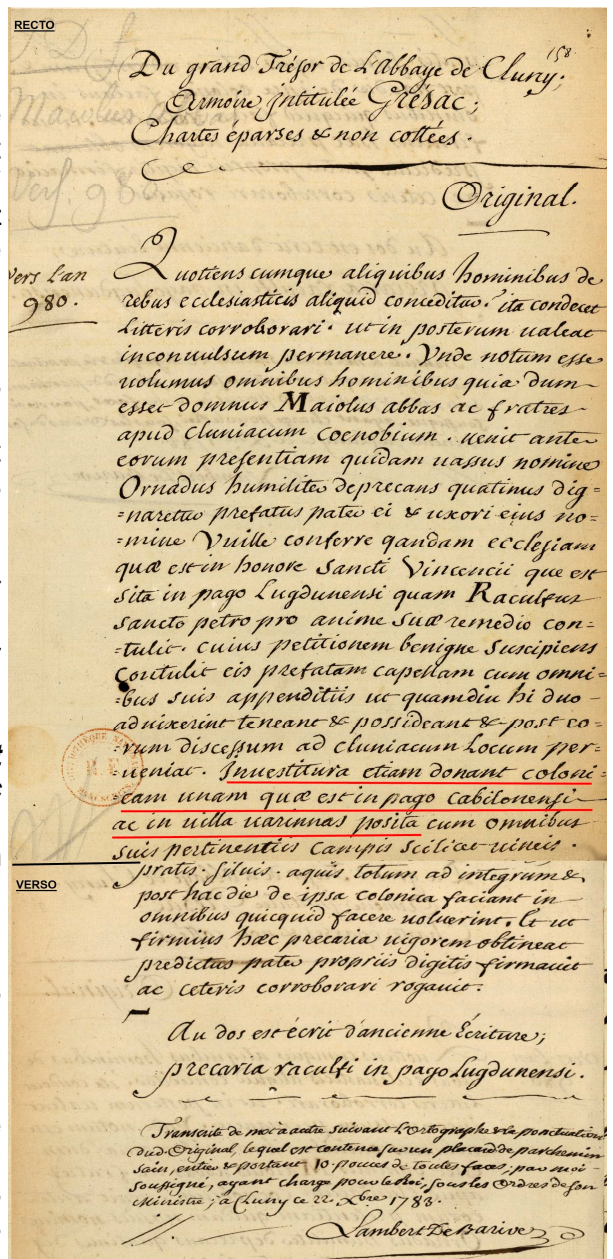 RECTO
158
Du grand Trésor de L'abbaye de Cluny;
Armoire intitulée Grésac;
Chartes éparses & non cottées.
Original.
Vers L'an
980.
Quottens cumque aliquibus hominibus de
rebus ecclesiasticis aliquid conceditur. ita condecet
Litteris corroborari. ut in posterum ualeat
inconuulsum permanere. Vnde notum esse
uolumus omnibus hominibus quia dum
esset domnus Maiolus abbas ac fratres
apud cluniacum coenobium. uenit ante
eorum presentiam quidam uassus nomine
Ornadus humiliter deprecans quatinus dig-
=naretur prefatus pater ei & uxori eius no-
=mine Vuille conferre qandam ecclesiam
quæ est in honore Sancti Vincencii que est
sita in pago Lugdunensi quam Raculfus
sancto petro pro anime suæ remedio con-
=tulit. cuius petitionem benigne suscipiens
Contulit eis prefatam capellam cum omni=
=bus suis appenditiis ut quamdiu hi duo
aduixerint teneant & possideant & post eo-
=rum discessum ad cluniacum Locum per-
=ueniat. Inuestitura etiam donant coloni=
=cam unam quæ est in pago Cabilonensi
ac in uilla uarennas posita cum omnibus
suis pertinentiis campis scilicet uineis.
VERSO
pratis. siluis. aquis. totum ad integrum &
post hac die de ipsa colonica faciant in
omnibus quicquid facere uoluerint. Et ut
firmius hæc precaria uigorem obtineat
predictus pater propriis digitis firmauit
ac ceteris corroborari rogauit.
Au dos est écrit d'ancienne Écriture;
precaria raculfi in pago Lugdunensi.
Transcrite de mot à autre suivant L'ortographe & la ponctuation
dud. Original, lequel est contenu sur un placard de parchemin
sain, entier & portant 10 pouces de toutes faces; par moi
soussigné, ayant charge pour le Roi, sous les Ordres de son
Ministre; à Cluny ce 22. Xbre 1783.
Lambert De Barive